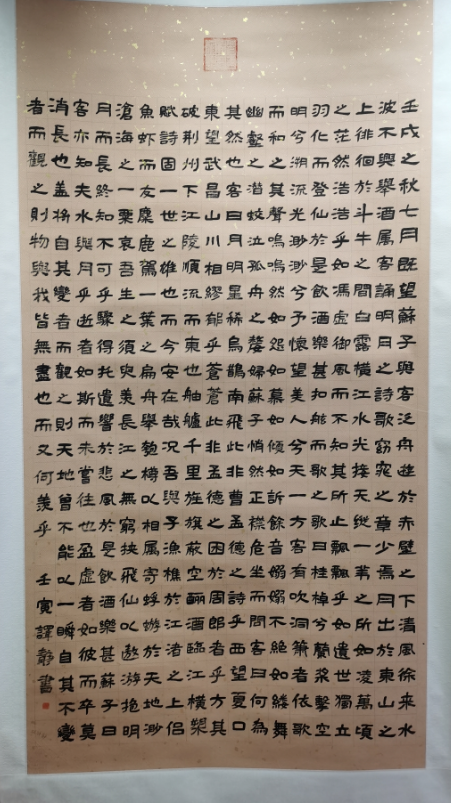 壬戌之秋七月既望蘇子與客泛舟遊於赤壁之下清風徐來水
波不興舉酒属客誦明月之詩歌窈窕之章少焉月出於東山之
上徘徊於斗牛之間白露橫江水光接天縱一葦之所如凌萬頃
之茫然浩浩乎如馮虛御風而不知其所止飄飄乎如遺世獨立
羽化而登仙於是飲酒樂甚扣舷而歌之歌曰桂棹兮蘭槳擊空
明兮溯流光渺渺兮予懷望美人兮天一方客有吹洞簫者依歌
而和之其聲嗚嗚然如怨如慕如如訴餘音嫋嫋不絕如縷舞
幽壑之潛蛟泣孤舟之嫠婦蘇子愀然正襟危坐而問客曰何為
其然也客曰月明星稀烏鵲南飛此非曹孟德之詩乎西望夏口
東望武昌山川相繆郁乎蒼蒼此非孟德之困於周郎者乎方其
破荊州下江陵順流而東也舳艫千里旌旗蔽空釃酒臨江橫槊
賦詩固一世之雄也而今安在哉況吾與子漁樵於江渚之上侶
魚虾而友麋鹿駕一葉之扁舟舉匏樽以相属寄蜉蝣於天地渺
滄海之一粟哀吾生之須臾羨長江之無窮挾飛仙以遨游抱明
月而長終知不可乎驟得托遺響於悲風於是飲酒樂甚蘇子曰
客亦知夫水與月乎逝者如斯而未嘗往也盈虛者如彼而卒莫
消長也盖將自其變者而觀之則天地曾不能以一瞬自其不變
者而觀之則物與我皆無盡也而又何羨乎 壬寅譯書